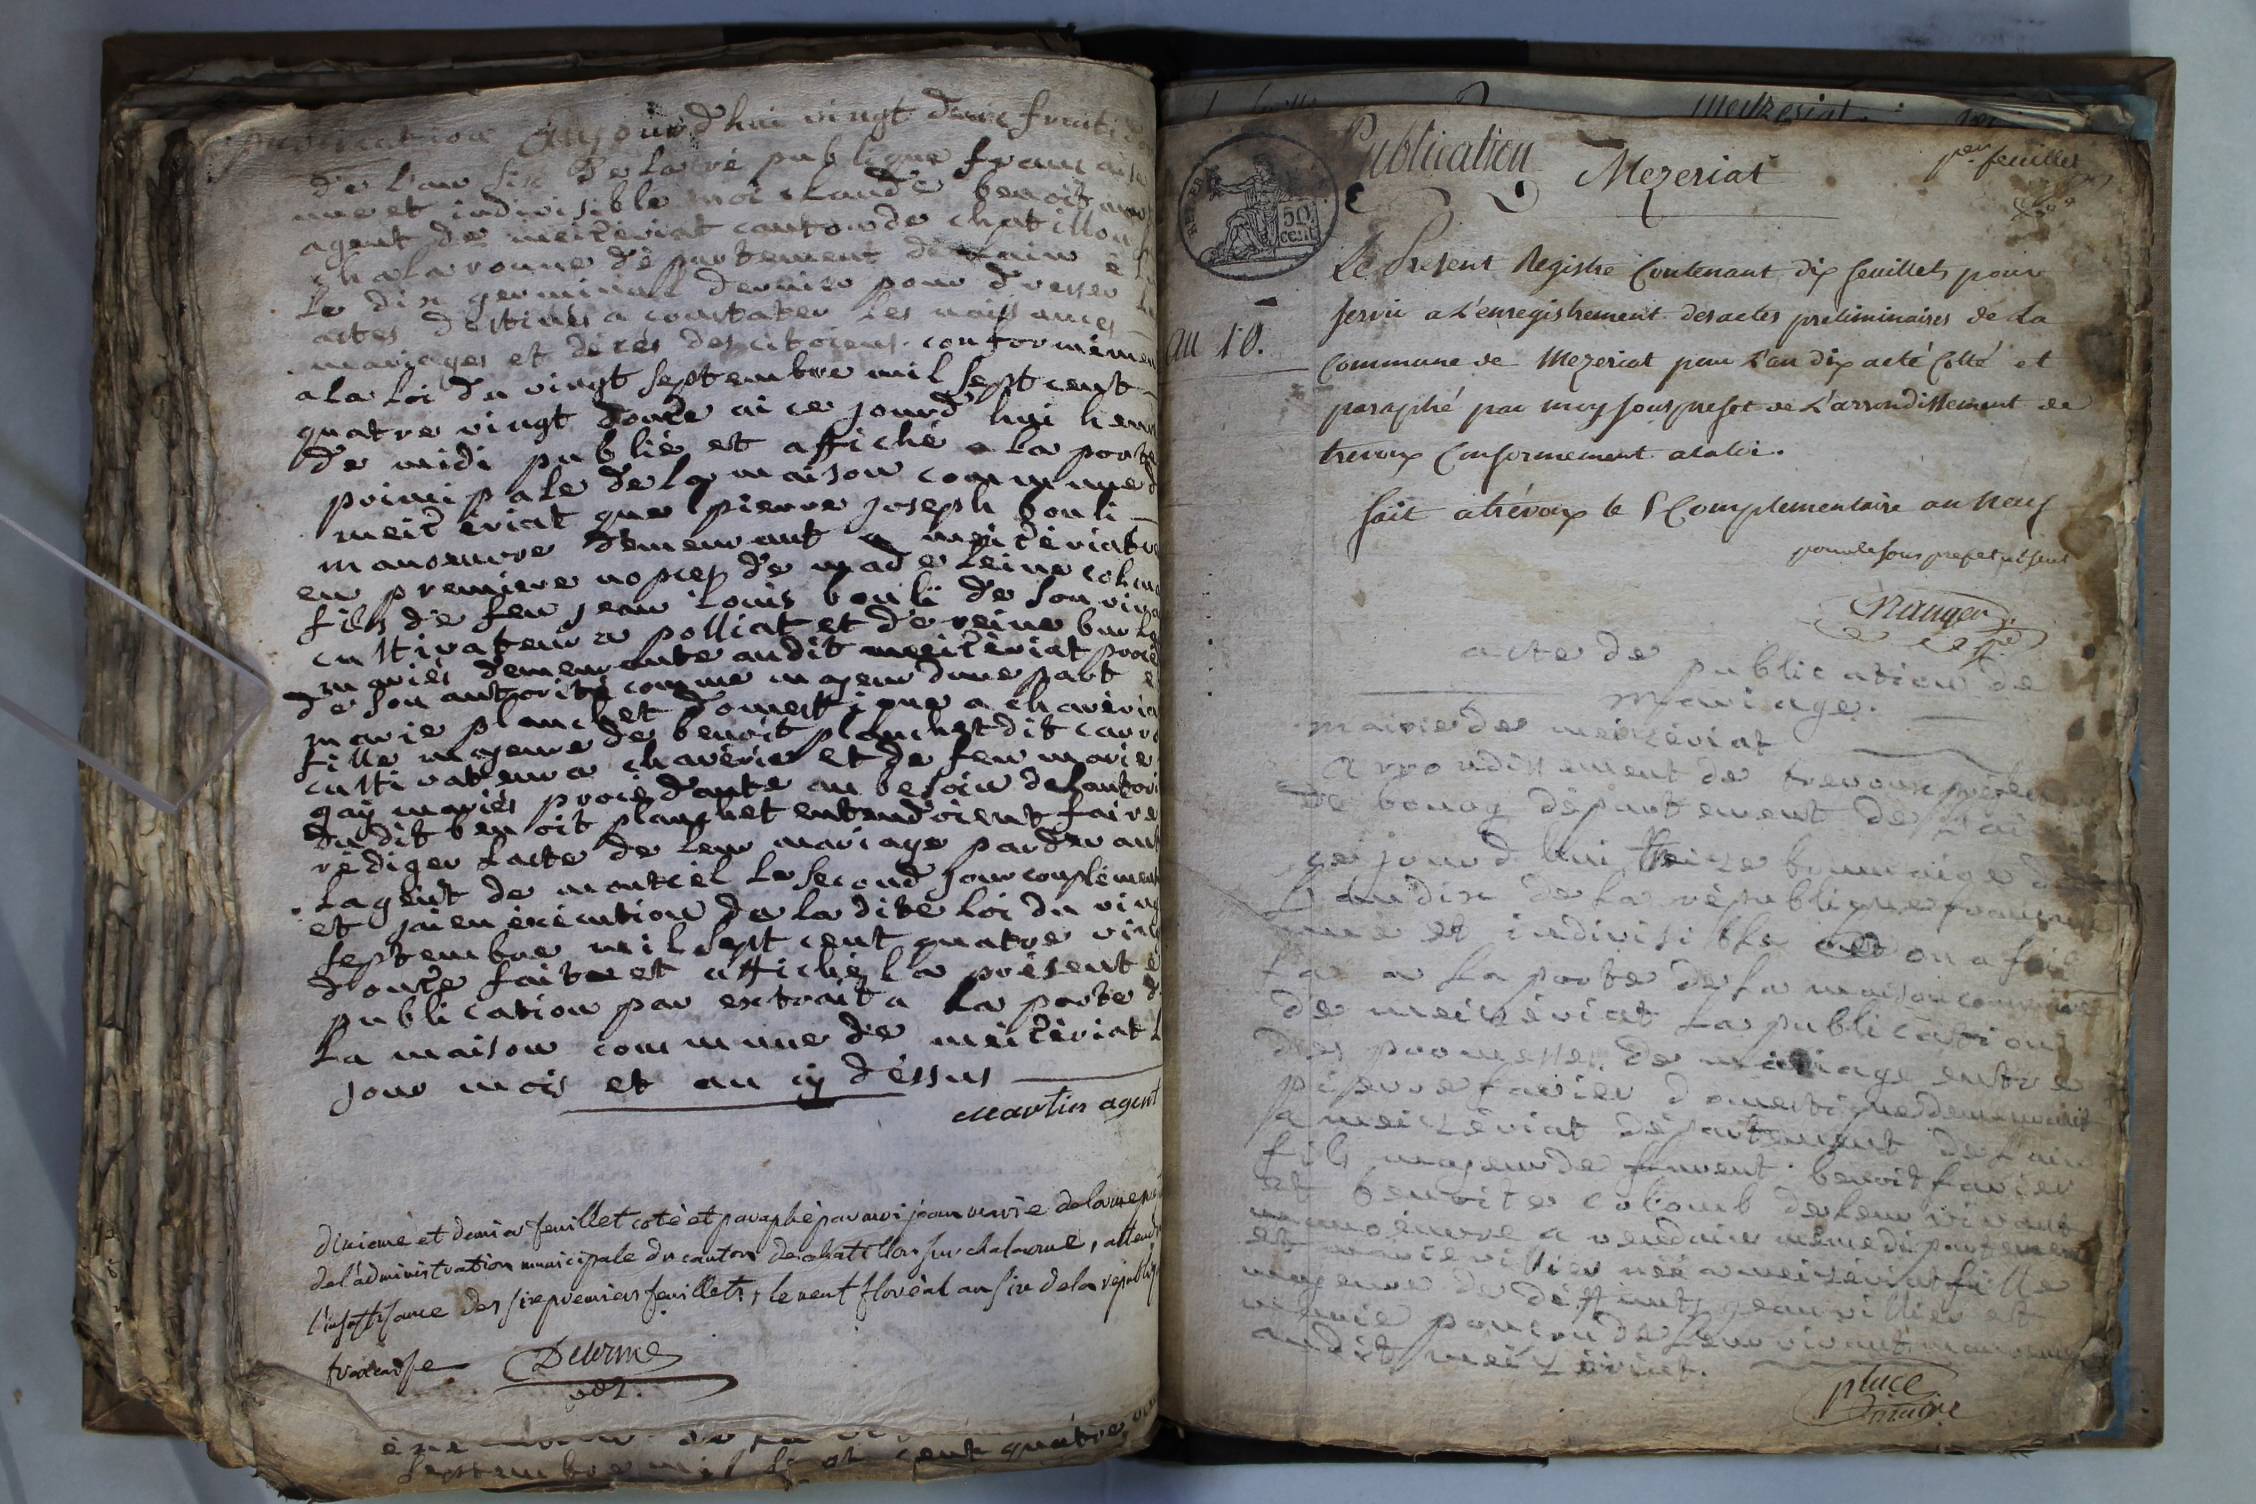 publication Aujourd'hui vingt deux fructi
de l'an six de la ré publique françaiſe
une et indivisible moi claude benoit
agent de meizeriat canton de chatillon
chalaronne dé partement de lain
le dix germinal dernier pour dresser
actes destinés a constater les naissances
mariages et décés des citoiens conformémen
a la loi du vingt septembre mil sept cent
quatre vingt douze ai ce jourd'hui heur
de midi publié et affiché a la porte
principale de la maison commune d
meizériat que pierre joseph bouli
manoeuvre demeurant a meizériat
en premiere nopces de madeleine
fils de feu jean louis bouli de son viva
cultivateur a polliat et de reine
mariés demeurante audit meizériat procé
de son authorité comme majeur dune part e
marie planchet domestique a chavéria
fille majeure de benoit planchet dit carr
cultivateur a chavériat et de feu marie
gay mariés procédante au besoin de lautori
dudit benoit planchet entendoient faire
rédiger lacte de leur mariage pardevant
lagent de montcel le second jour complément
et jai en éxécution de la dite loi du ving
septembre mil sept cent quatre ving
douze faite et affichéz la présente
publication par extrait a la porte d
la maison commune de meizériat l
jour mois et an cy dessus
Martin agent
dixieme et dernier feuillet coté et paraphé par moi jean marie delorme
de l'administration municipale du canton de chatillon sur chalaronne, attendu
l'insuffisance des six premiers feuillets, le neuf floréal an six de la républiq
francaise Delorme
septembre mil sept cent quatre
Publication Mezeriat per feuillet
50
cent
an 10.
Le Present Registre Contenant dix feuillets pour
servir a L'enregistrement des actes preliminaires de La
Commune de Mezeriat pour L'an dix a eté Cotté et
paraphé par moy sousprefet de L'arrondissement de
trevoux Conformement a la loi.
fait a trévoux le Complementaire an neuf
pour le sous prefet absent
acte de publication de
mariage.
mairie de meizériat
arrondissement de trevoux
de bourg département de L'ain
ce jourd'hui treize brumaire
L'an dix de la république française
une et indivisible on a fait
a la porte de la maison commune
de meizériat La publication
des promesses de mariage entre
pierre favier domestique demeurant
a meizériat département de L'ain
fils majeur de benoit favier
et benoite coloumb de leur vivant
manoeuvre a vendeins même département
et marie villier née a meizériat fille
majeure de déffunts jean villier et
marie de leur vivant manoeuvre
audit meizériat.
place
maire